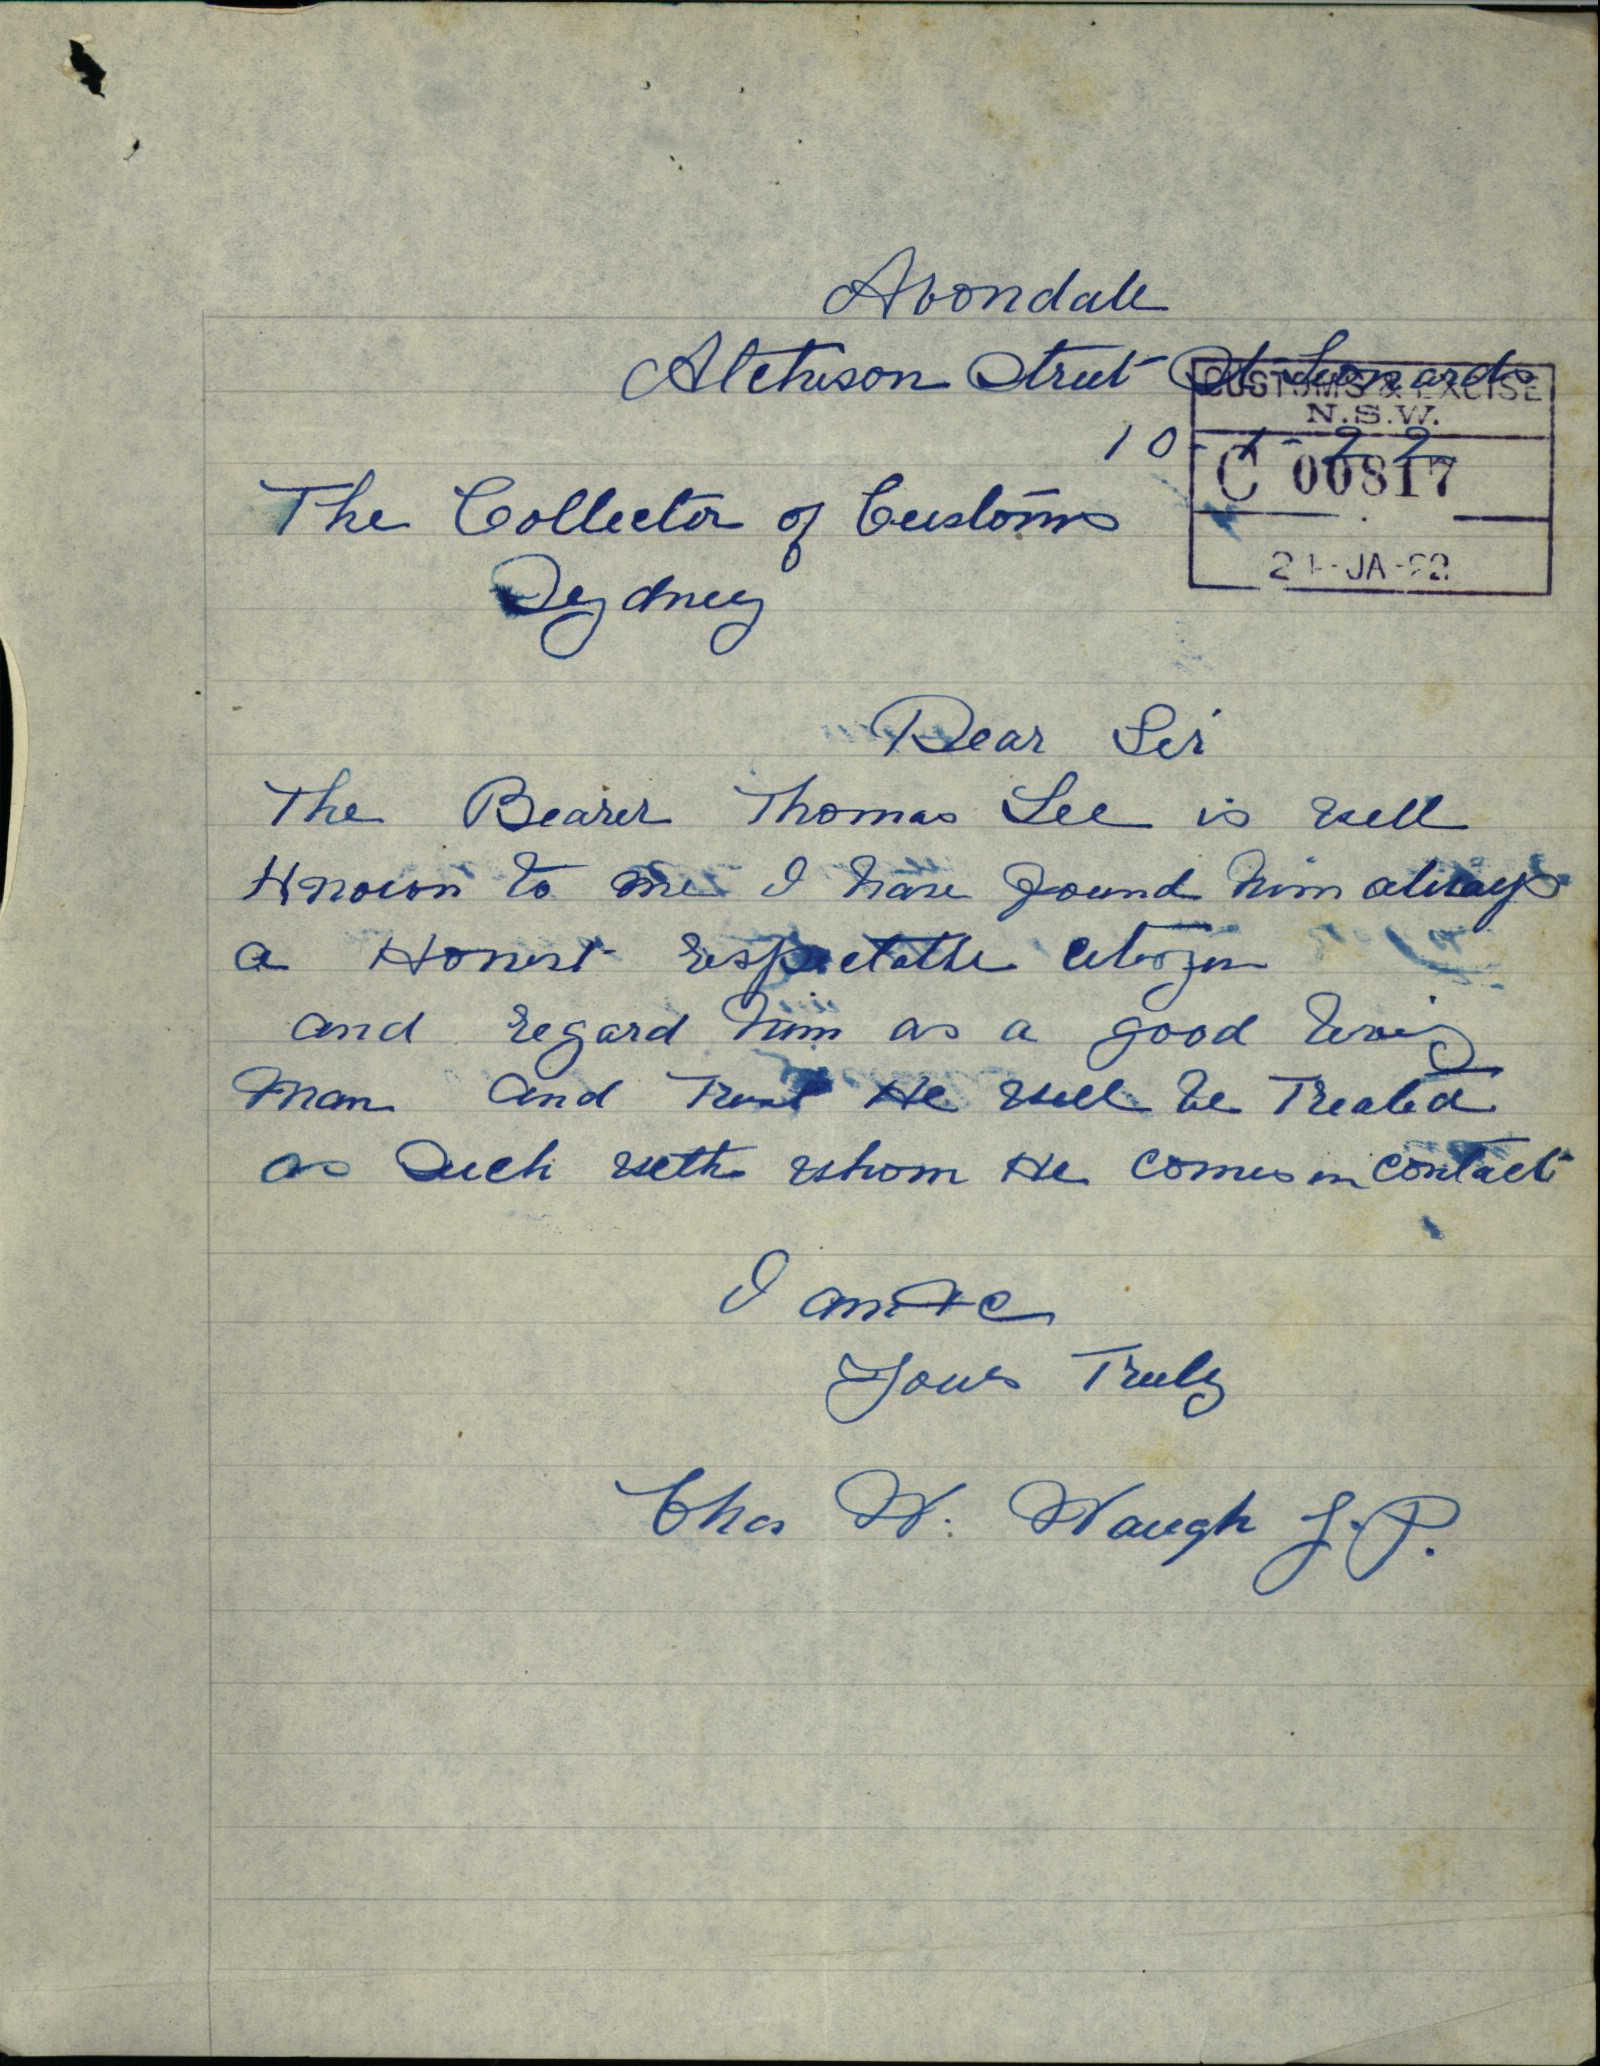 Avondale
Atchison Street St Leonards
10-1-22
CUSTOMS & EXCISE
N.S.W.
C 00817
21-JA-22
The Collector of Customs
Sydney
Dear Sir
The Bearer Thomas Lee is well
Known to me I have found him always
a Honest respectable citizen
and regard him as a good living
man and Trust He will be Treated
as Such with whom He comes in contact
I am &c
Yours Truly
Chas W. Waugh J.P.